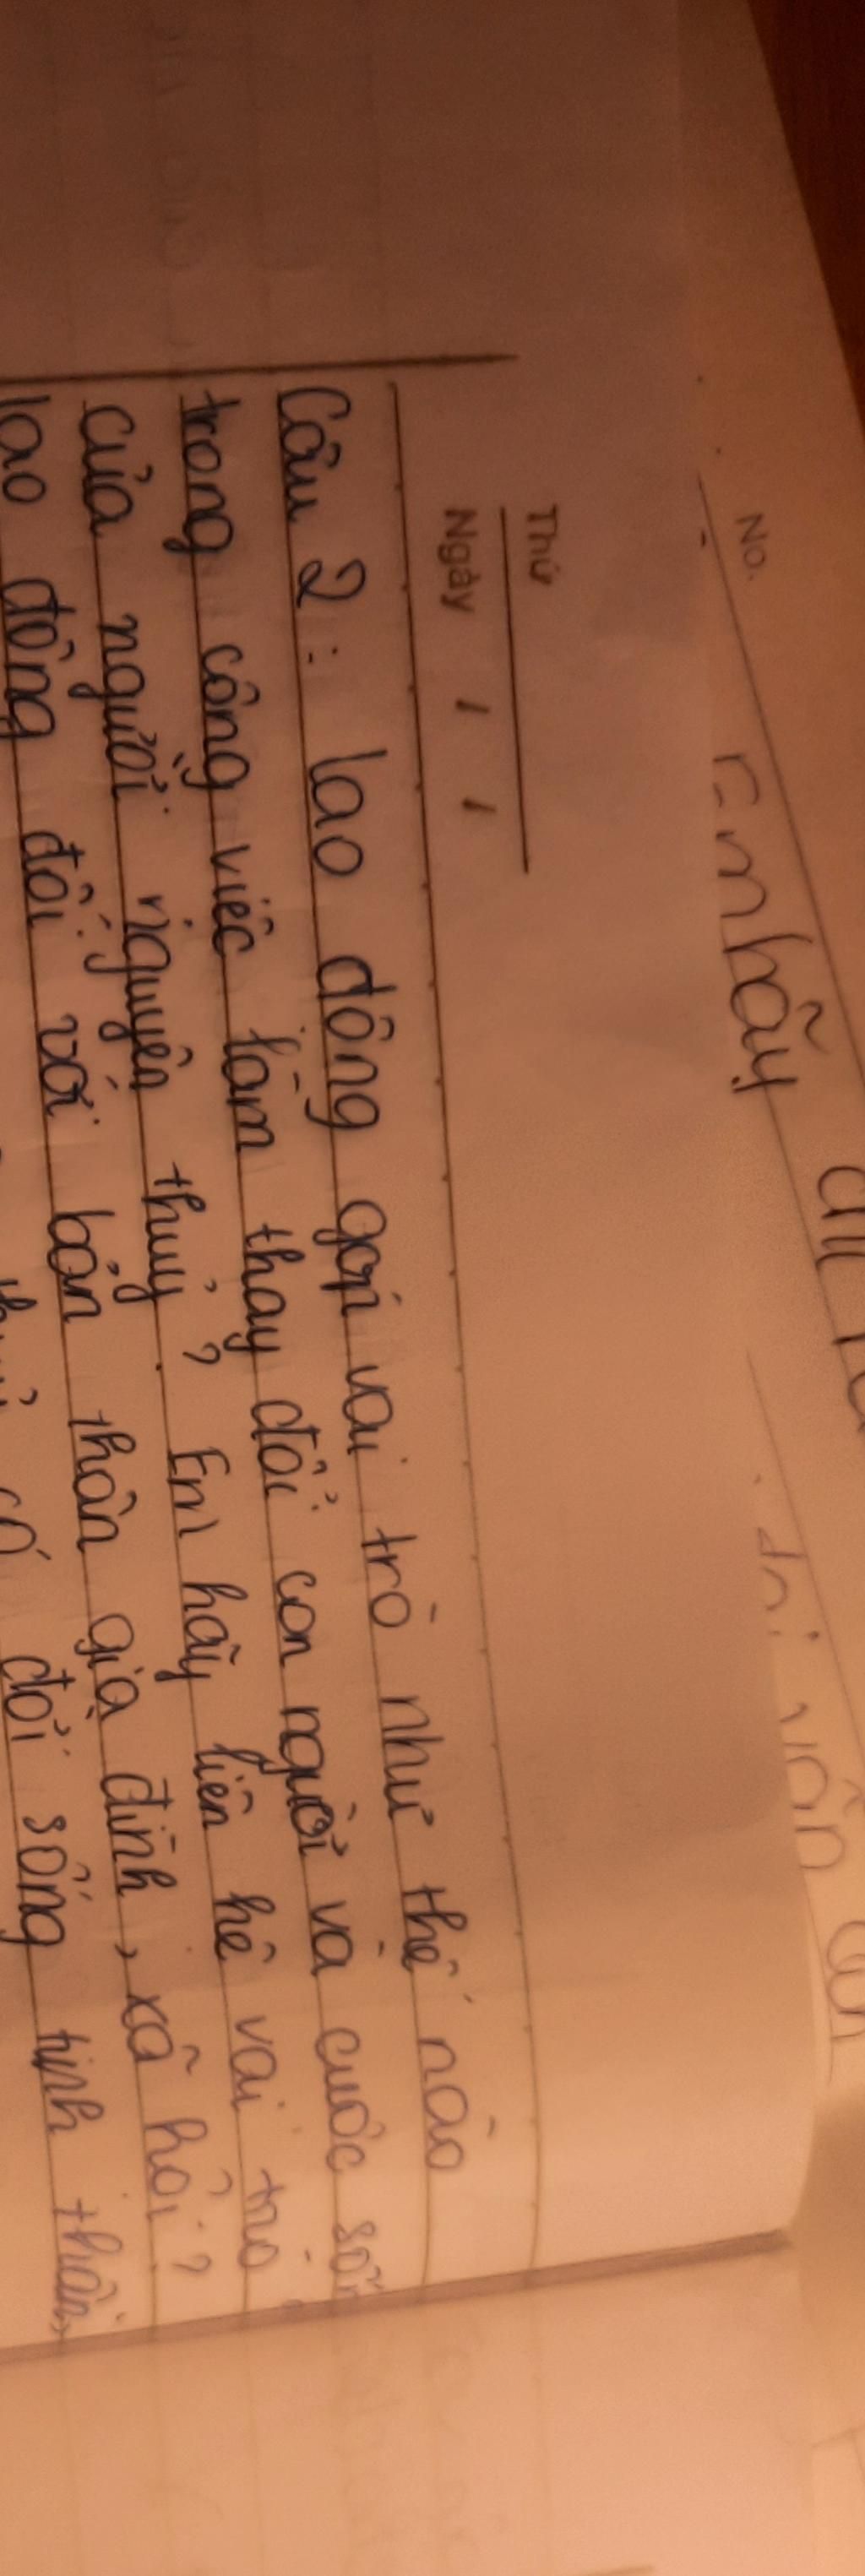 No.
Thứ
Ngày / /
Câu 2: lao động gọi vai trò như thế nào
trong công việc làm thay đổi con người và cuộc
của người nguyên thuỷ? Em hãy liên hệ vai trò
lao động đối với bản thân gia đình, xã hội?
đời sống tinh thần